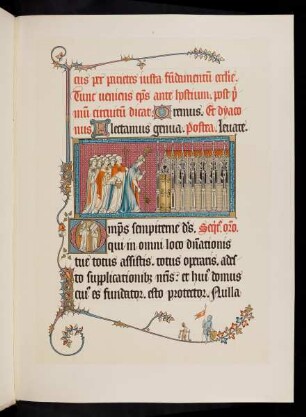 cus per parietes iuxta fundamentum ecclie.
Tunc ueniens eps ante hostium, post p
mum circuitum dicat Oremus. Et dyaco
nus Flectamus genua. Postea. leuate.
Omps sempiterne ds, Seqr. oro.
qui in omni loco dnationis
tue totus assistis. totus operaris, ades
to supplicationib; nris: et hui' domus
cui' es fundator, esto protector. Nulla